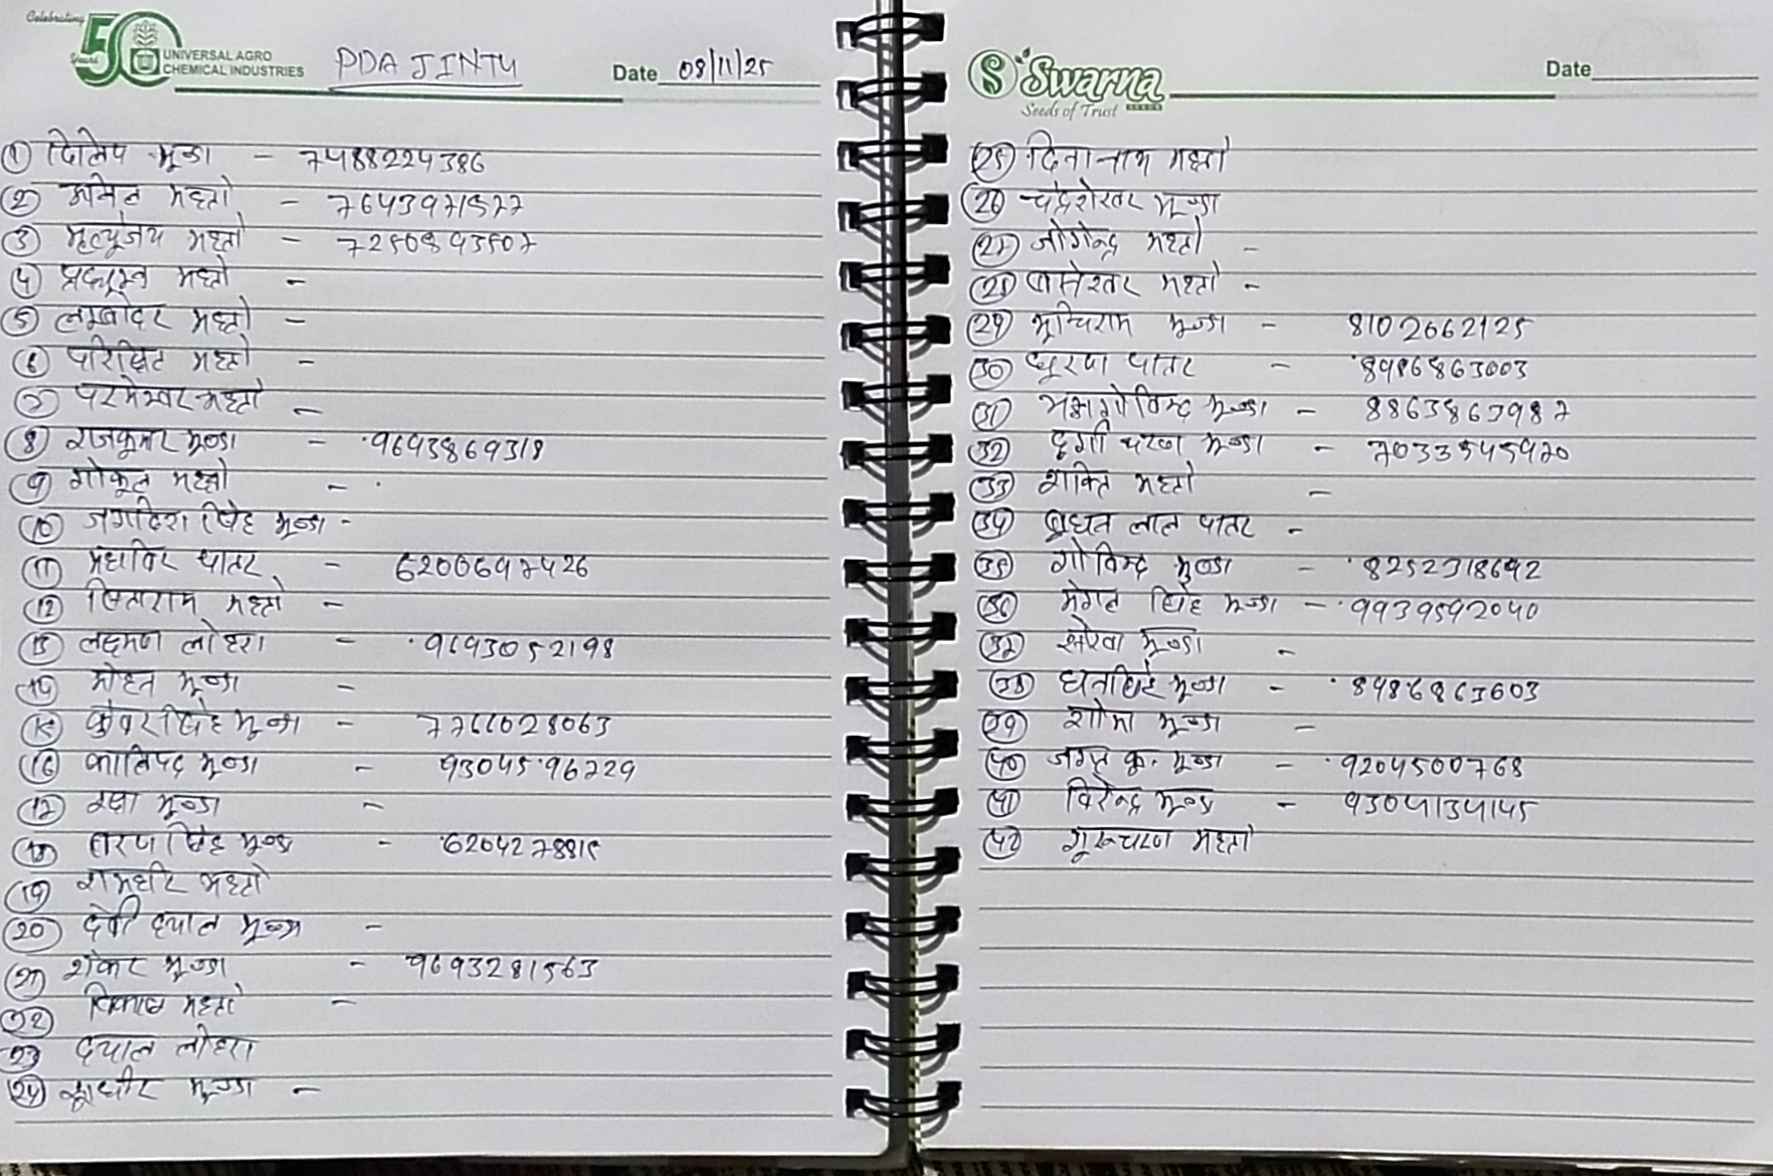 Celebrating
50 Years
UNIVERSAL AGRO
CHEMICAL INDUSTRIES
PDA JINTU
Date 08/11/25
① दिलिप मूण्डा - 7488224386
② अनित महतो - 7643971577
③ मृत्युंजय महतो - 7250893507
④ प्रद्युम्न महतो -
⑤ लम्बोदर महतो -
⑥ परिक्षित महतो -
⑦ परमेश्वर महतो -
⑧ राजकुमार मूण्डा - 9693869318
⑨ गोकुल महतो -
⑩ जगदिश सिंह मूण्डा -
⑪ महाविर पातर - 6200697426
⑫ सिताराम महतो -
⑬ लक्ष्मण लोहरा - 9693052198
⑭ मोहन मूण्डा -
⑮ कुंवर सिंह मूण्डा - 7766028063
⑯ कालिपद मूण्डा - 9304596229
⑰ मूण्डा -
⑱ सिंह मूण्डा - 6204278815
⑲ रामधीर महतो
⑳ देवी दयाल मूण्डा -
㉑ शंकर मूण्डा - 9693281563
㉒ विकाश महतो -
㉓ दयाल लोहरा
㉔ सूधीर मूण्डा -
Swarna
Seeds of Trust
Date
㉕ दिनानाथ महतो
㉖ चंद्रशेखर मूण्डा
㉗ जोगेन्द्र महतो -
㉘ महतो -
㉙ मूचिराम मूण्डा - 8102662125
㉚ पातर - 8986863003
㉛ मूण्डा - 8863863987
㉜ दूर्गा चरण मूण्डा - 7033545970
㉝ शक्ति महतो -
㉞ बुधन लाल पातर -
㉟ गोविन्द मुण्डा - 8252318692
㊱ मंगल सिंह मूण्डा - 9939592040
㊲ मूण्डा -
㊳ धनसिंह मूण्डा - 8986863603
㊴ शोमा मूण्डा -
㊵ जगत कु. मूण्डा - 9204500768
㊶ विरेन्द्र मूण्डा - 9304134145
㊷ गूरूचरण महतो